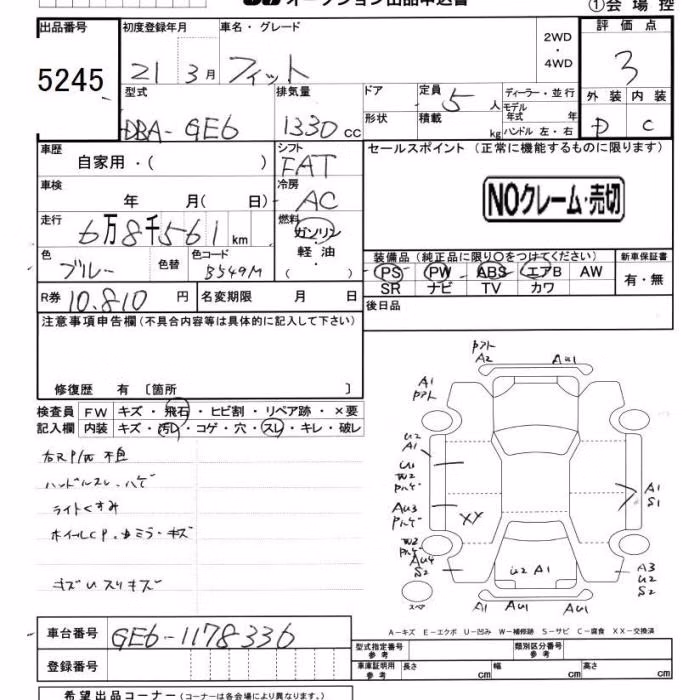 オークション出品申込書
①会場控
出品番号 初度登録年月 車名・グレード 2WD・4WD 評価点
5245 21 3月 フィット 3
型式 排気量 ドア 定員 5人 ディーラー・並行 外装 内装
DBA-GE6 1330cc 形状 積載 kg モデル年式 年 D C
ハンドル 左・右
車歴 自家用・( ) シフト FAT セールスポイント(正常に機能するものに限ります)
車検 年 月(日) 冷房 AC NOクレーム・売切
走行 6万8千561km 燃料 ガソリン・軽油・( )
装備品(純正品に限り○をつけてください) 新車保証書
色 ブルー 色替 色コード B549M PS PW ABS エアB AW 有・無
SR ナビ TV カワ
R券 10.810円 名変期限 月 日 後日品
注意事項申告欄(不具合内容等は具体的に記入して下さい)
修復歴 有〔箇所 〕
検査員記入欄 FW キズ・飛石・ヒビ割・リペア跡・×要
内装 キズ・汚レ・コゲ・穴・スレ・キレ・破レ
右RP/W 不良
ハンドルスレ・ハゲ
ライトくすみ
ホイルCP.ドミラ・キズ
キズUスリキズ
A1
A2
AU1
A1
U2
A1
U1
W2
AU3
XX
W3
AU4
S2
A1
S1
U2 A1
A3
U2
S2
スペア
A1 AU1 AU1
A-キズ E-エクボ U-凹み W-補修跡 S-サビ C-腐食 XX-交換済
車台番号 GE6-1178336
型式指定番号 参考 類別区分番号 参考
登録番号 車庫証明用 参考 長さ cm 幅 cm 高さ cm
希望出品コーナー(コーナーは各会場により異なります。)